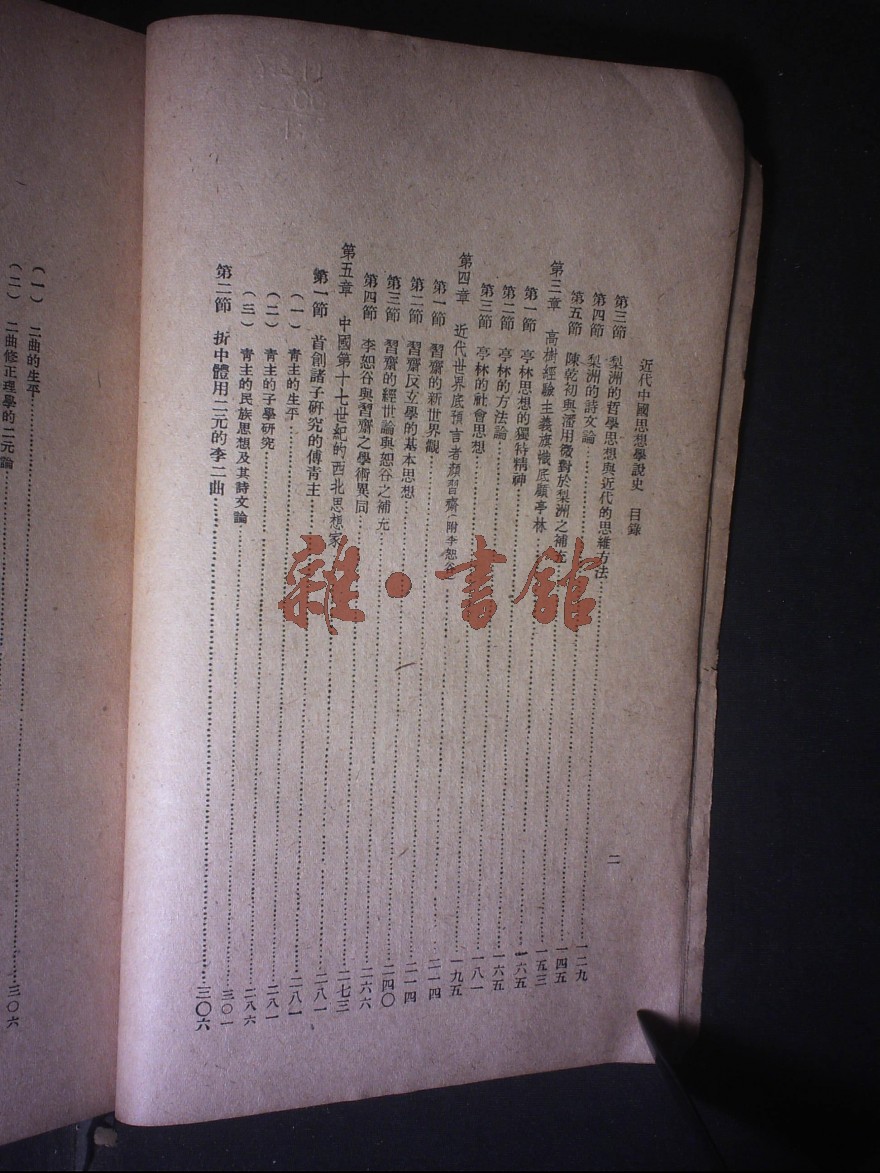 近代中國思想學說史 目錄 二
第三節 梨洲的哲學思想與近代的思維方法……一二九
第四節 梨洲的詩文論……一四五
第五節 陳乾初與潘用微對於梨洲之補充……一五三
第三章 高樹經驗主義旗幟底顧亭林……一六五
第一節 亭林思想的獨特精神……一六五
第二節 亭林的方法論……一八一
第三節 亭林的社會思想……一九五
第四章 近代世界底預言者顏習齋(附李恕谷)……二一四
第一節 習齋的新世界觀……二一四
第二節 習齋反玄學的基本思想……二四〇
第三節 習齋的經世論與恕谷之補充……二六六
第四節 李恕谷與習齋之學術異同……二七三
第五章 中國第十七世紀的西北思想家……二八一
第一節 首創諸子研究的傅青主……二八一
(一) 青主的生平……二八一
(二) 青主的子學研究……二八六
(三) 青主的民族思想及其詩文論……三〇一
第二節 折中體用二元的李二曲……三〇六
(一) 二曲的生平……三〇六
(二) 二曲修正理學的二元論……
雜·書館